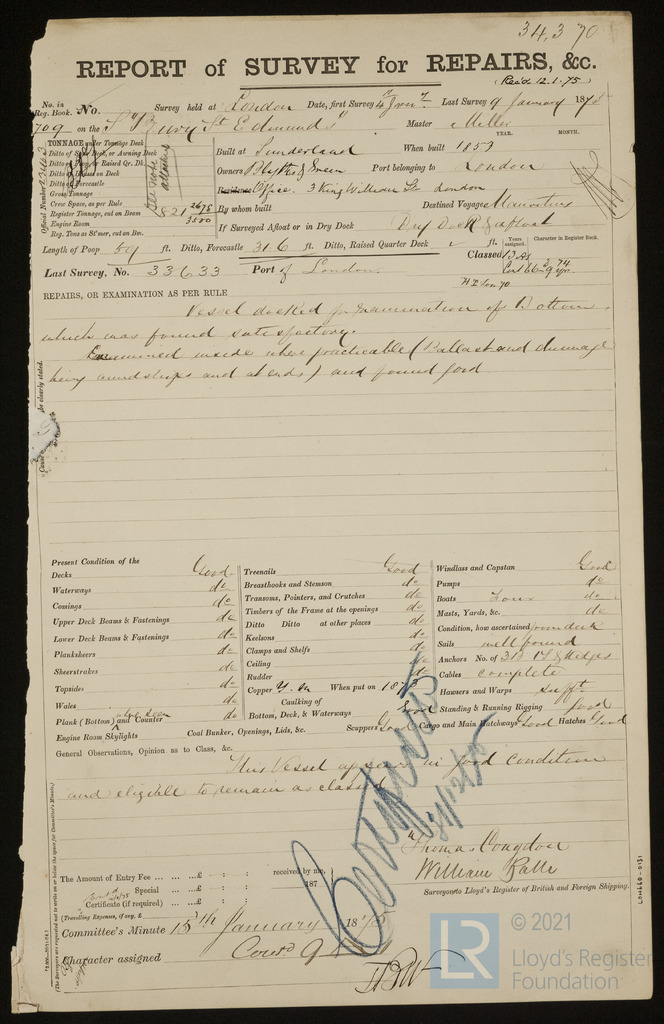 34,370
REPORT of SURVEY for REPAIRS, &c.
(Recd 12.1.75)
No. in Reg. Book. No. Survey held at London Date, first Survey Last Survey 9 January 1875
709 on the "Bury St Edmunds" Master Miller
YEAR. MONTH.
TONNAGE under Tonnage Deck
Built at Sunderland When built 1853
Owners Blyth & Green Port belonging to London
Residence Office. 3 King William St London
Gross Tonnage
Crew Space, as per Rule
By whom built Destined Voyage Mauritius
Register Tonnage, cut on Beam
Engine Room
If Surveyed Afloat or in Dry Dock Dry Dock & afloat
Reg. Tons as St'mer, cut on Bm.
Official Number
Length of Poop 59 ft. Ditto, Forecastle 31.6 ft. Ditto, Raised Quarter Deck ft.
Years assigned. Character in Register Book.
Classed 13 A1
Last Survey, No. 33633 Port of London
REPAIRS, OR EXAMINATION AS PER RULE
Vessel docked for examination of Bottom
which was found satisfactory.
Examined inside where practicable (Ballast and dunnage
being amidships and at ends) and found good
Present Condition of the
Decks Good
Waterways do
Comings do
Upper Deck Beams & Fastenings do
Lower Deck Beams & Fastenings do
Planksheers do
Sheerstrakes do
Topsides do
Wales do
Plank (Bottom) and Counter do
Engine Room Skylights
Treenails Good
Breasthooks and Stemson do
Transoms, Pointers, and Crutches do
Timbers of the Frame at the openings do
Ditto Ditto at other places do
Keelsons do
Clamps and Shelfs do
Ceiling do
Rudder do
Copper Y.M When put on 1873
Caulking of
Bottom, Deck, & Waterways Good
Coal Bunker, Openings, Lids, &c. Scuppers Good Cargo and Main Hatchways Good Hatches Good
Windlass and Capstan Good
Pumps do
Boats Four do
Masts, Yards, &c. do
Condition, how ascertained from deck
Sails well found
Anchors No. of 3B 1S & 2 Kedges
Cables complete
Hawsers and Warps sufft
Standing & Running Rigging good
General Observations, Opinion as to Class, &c.
This Vessel appears in good condition
and eligible to remain as classed
Thomas Congdon
William Balls
Surveyors to Lloyd's Register of British and Foreign Shipping.
The Amount of Entry Fee ... £ : : received by me,
Special ... £ : : 187
Certificate (if required) ... £ : :
(Travelling Expenses, if any, £ )
Committee's Minute 15th January 1875
Character assigned Contd 9
LR
© 2021
Lloyd's Register
Foundation